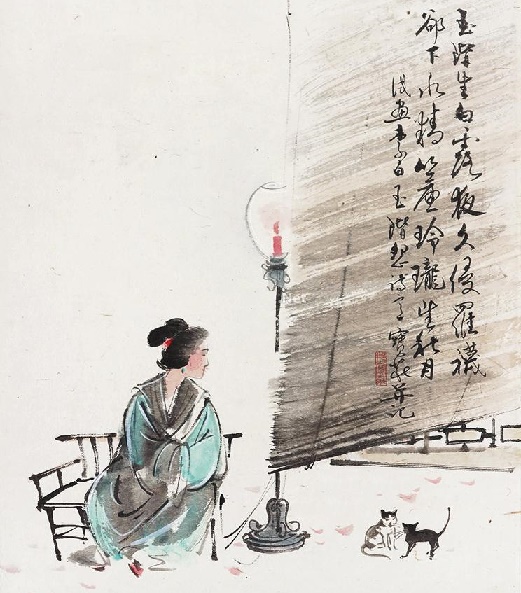 玉階生白露夜久侵羅襪
卻下水精簾玲瓏望秋月
畫李白玉階怨詩意寶并記